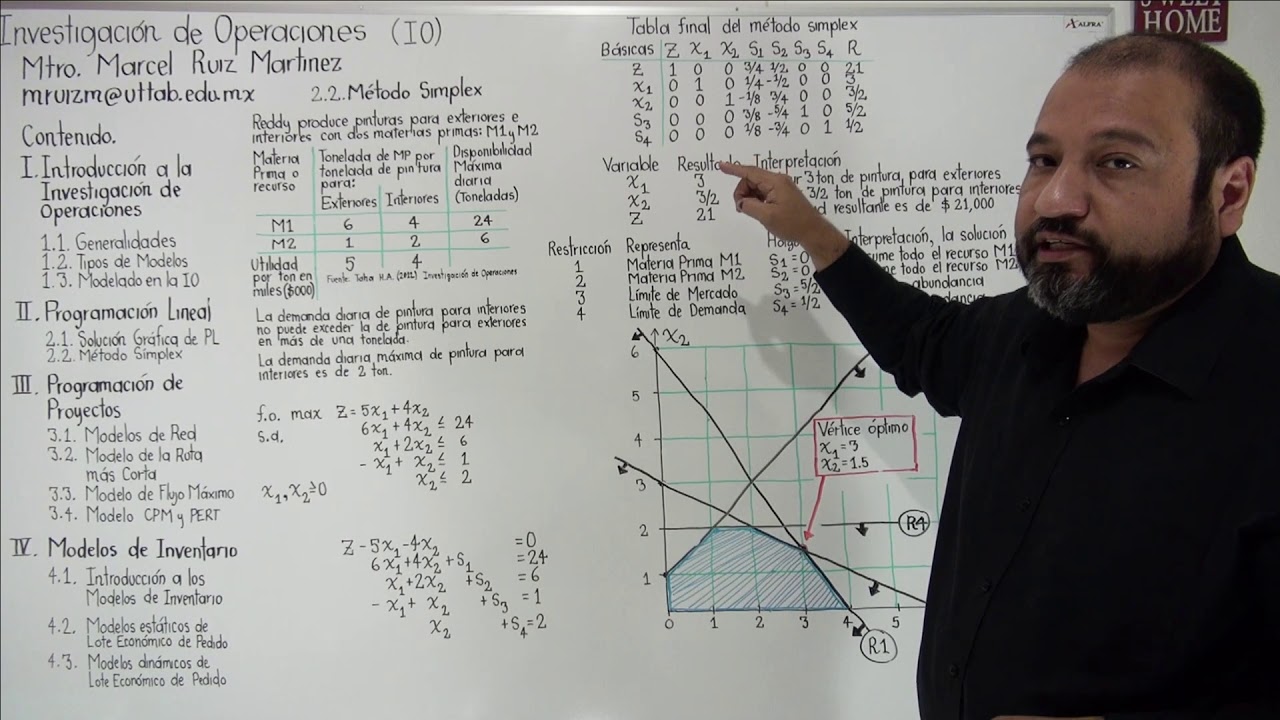 Investigación de Operaciones (IO)
Mtro. Marcel Ruiz Martínez
mruizm@uttab.edu.mx
2.2. Método Simplex
Contenido.
I. Introducción a la
Investigación de
Operaciones
1.1. Generalidades
1.2. Tipos de Modelos
1.3. Modelado en la IO
II. Programación Lineal
2.1. Solución Gráfica de PL
2.2. Método Simplex
III. Programación de
Proyectos
3.1. Modelos de Red
3.2. Modelo de la Ruta
más Corta
3.3. Modelo de Flujo Máximo
3.4. Modelo CPM y PERT
IV. Modelos de Inventario
4.1. Introducción a los
Modelos de Inventario
4.2. Modelos estáticos de
Lote Económico de Pedido
4.3. Modelos dinámicos de
Lote Económico de Pedido
Reddy produce pinturas para exteriores e
interiores con dos materias primas: M1 y M2
Materia
Prima o
recurso
Tonelada de MP por
tonelada de pintura
para:
Disponibilidad
Máxima
diaria
(Toneladas)
Exteriores Interiores
M1 6 4 24
M2 1 2 6
Utilidad
por ton en
miles ($000)
5 4
Fuente: Taha H.A. (2012) Investigación de Operaciones
La demanda diaria de pintura para interiores
no puede exceder la de pintura para exteriores
en más de una tonelada.
La demanda diaria máxima de pintura para
interiores es de 2 ton.
f.o. max Z = 5x₁+4x₂
s.a. 6x₁+4x₂ ≤ 24
x₁+2x₂ ≤ 6
- x₁+ x₂ ≤ 1
x₂ ≤ 2
x₁,x₂≥0
Z-5x₁-4x₂ =0
6x₁+4x₂+S₁ =24
x₁+2x₂ +S₂ =6
-x₁+ x₂ +S₃ =1
x₂ +S₄=2
Tabla final del método simplex
Básicas Z x₁ x₂ S₁ S₂ S₃ S₄ R
Z 1 0 0 3/4 1/2 0 0 21
x₁ 0 1 0 1/4 -1/2 0 0 3
x₂ 0 0 1 -1/8 3/4 0 0 3/2
S₃ 0 0 0 3/8 -5/4 1 0 5/2
S₄ 0 0 0 1/8 -3/4 0 1 1/2
Variable Resultado Interpretación
x₁ 3 3 ton de pintura, para exteriores
x₂ 3/2 3/2 ton de pintura para interiores
Z 21 resultante es de $ 21,000
Restricción Representa Interpretación, la solución
1 Materia Prima M1 S₁=0 todo el recurso M1
2 Materia Prima M2 S₂=0 todo el recurso M2
3 Límite de Mercado S₃=5/2 abundancia
4 Límite de Demanda S₄=1/2
x₂
6
5
4
3
2
1
0 1 2 3 4 5
Vértice óptimo
x₁=3
x₂=1.5
R4
R1
ALFRA
SWEET
HOME